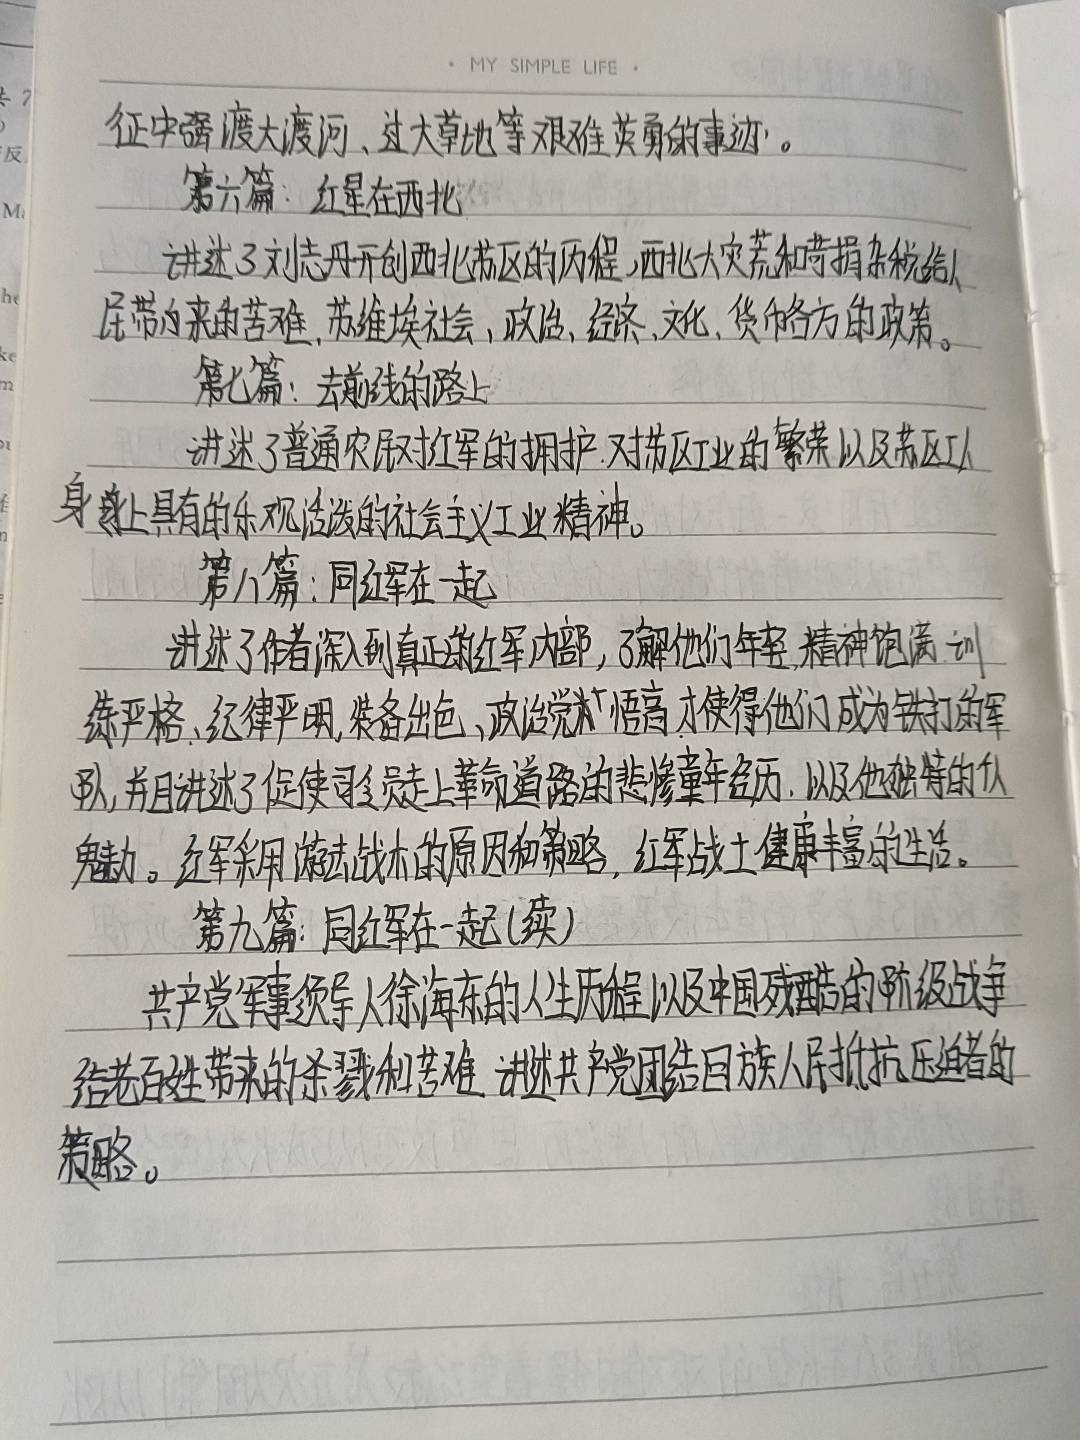 · MY SIMPLE LIFE ·
征中强渡大渡河、过大草地等艰难英勇的事迹。
第六篇：红星在西北
讲述了刘志丹开创西北苏区的历程，西北大灾荒和苛捐杂税给人
民带来的苦难，苏维埃社会、政治、经济、文化、货币各方的政策。
第七篇：去前线的路上
讲述了普通农民对红军的拥护．对苏区工业的繁荣以及苏区工人
身上具有的乐观活泼的社会主义工业精神。
第八篇：同红军在一起
讲述了作者深入到真正的红军内部，了解他们年轻，精神饱满、训
练严格、纪律严明，装备出色、政治觉悟高，才使得他们成为铁打的军
队，并且讲述了促使司令员走上革命道路的悲惨童年经历，以及他独特的人
魅力。红军采用游击战术的原因和策略，红军战士健康丰富的生活。
第九篇：同红军在一起（续）
共产党军事领导人徐海东的人生历程以及中国残酷的阶级战争
给老百姓带来的杀戮和苦难 讲述共产党团结回族人民抵抗压迫者的
策略。